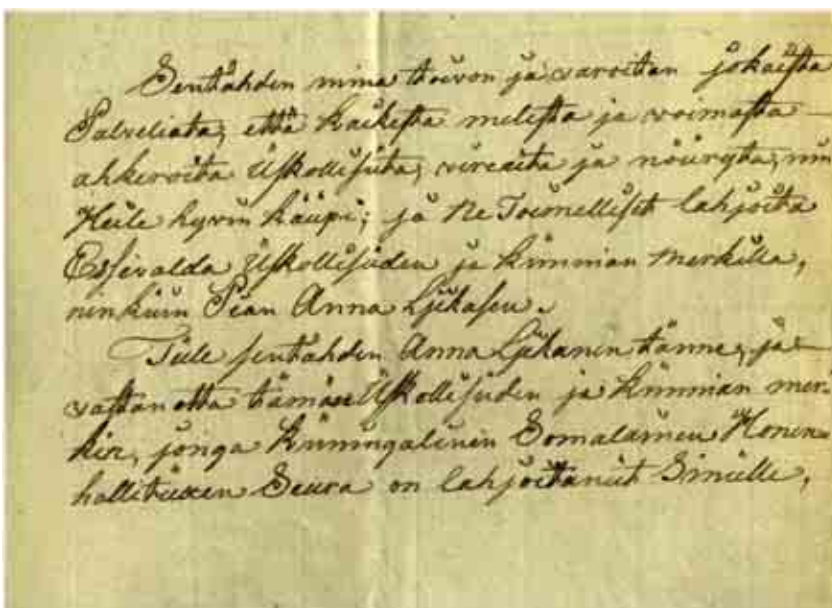 Sentähden mina toivon ja varoitan jokaista
Palveliata, että kaikesta melesta ja voimasta
ahkeroita Uskollisuta, vireöita ja nöüryta, niin
Heile hyvin käüpi; ja Ne Toimelliset lahjoita
Uskollisuden ja kunnian merkillä,
ninkuin Pian Anna Lÿikasen.
Tule sentähden Anna Lÿikanen tänne, ja
vastan otta tämän Uskollisuden ja kunnian mer-
kin, jonga kuningalinen Somalainen Honen-
hallituxen Seura on lahjoitanut Sinulle,